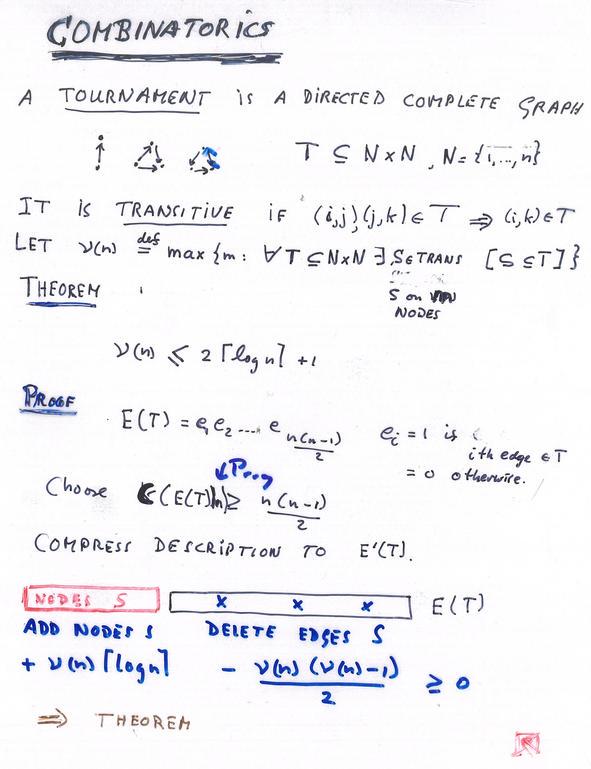 COMBINATORICS
A TOURNAMENT IS A DIRECTED COMPLETE GRAPH
T ⊆ N×N , N={1,...,n}
IT IS TRANSITIVE IF (i,j)(j,k)∈T ⇒ (i,k)∈T
LET ν(n) def = max {m: ∀T⊆N×N ∃S∈TRANS [S⊆T]}
S on m NODES
THEOREM
ν(n) ≤ 2⌈log n⌉ +1
PROOF
E(T) = e₁e₂....e n(n-1)/2 eᵢ=1 is ith edge ∈T
= 0 otherwise.
Choose C(E(T)|n)≥ n(n-1)/2
COMPRESS DESCRIPTION TO E'(T).
NODES S × × × E(T)
ADD NODES S DELETE EDGES S
+ ν(n)⌈log n⌉ - ν(n)(ν(n)-1)/2 ≥ 0
⇒ THEOREM